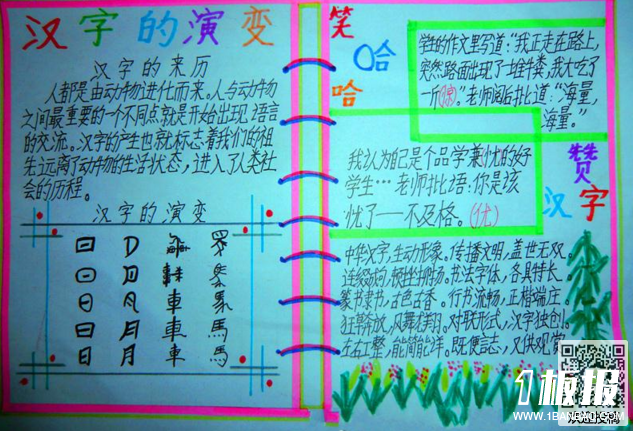 汉字的演变
汉字的来历
人都是由动物进化而来。人与动物
之间最重要的一个不同点就是开始出现语言
的交流。汉字的产生也就标志着我们的祖
先远离了动物的生活状态，进入了人类社
会的历程。
汉字的演变
車
車 馬
日 月 車 馬
笑
哈
哈
学生的作文里写道：“我正走在路上，
突然路面出现了一堆牛粪，我大吃了
一斤(惊)。”老师阅后批道：“海量，
海量。”
我认为自己是个品学兼忧的好
学生…老师批语：你是该
忧了——不及格。(优)
赞
汉字
中华汉字，生动形象。传播文明，盖世无双。
书法字体，各具特长。
篆书隶书，古色古香。行书流畅，正楷端庄。
狂草奔放，凤舞龙翔。对联形式，汉字独创。
左右工整，能简能详。既便言志，又供观赏。
板报
WWW.1BANBAO.COM
欢迎投稿